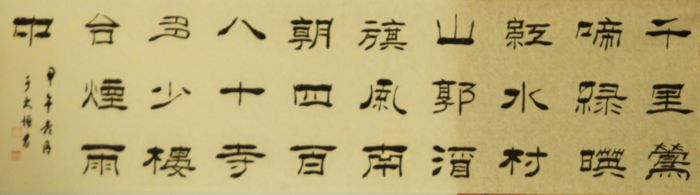 千里鶯
啼綠暎
紅水村
山郭酒
旗風南
朝四百
八十寺
多少樓
台煙雨
中
甲午春月